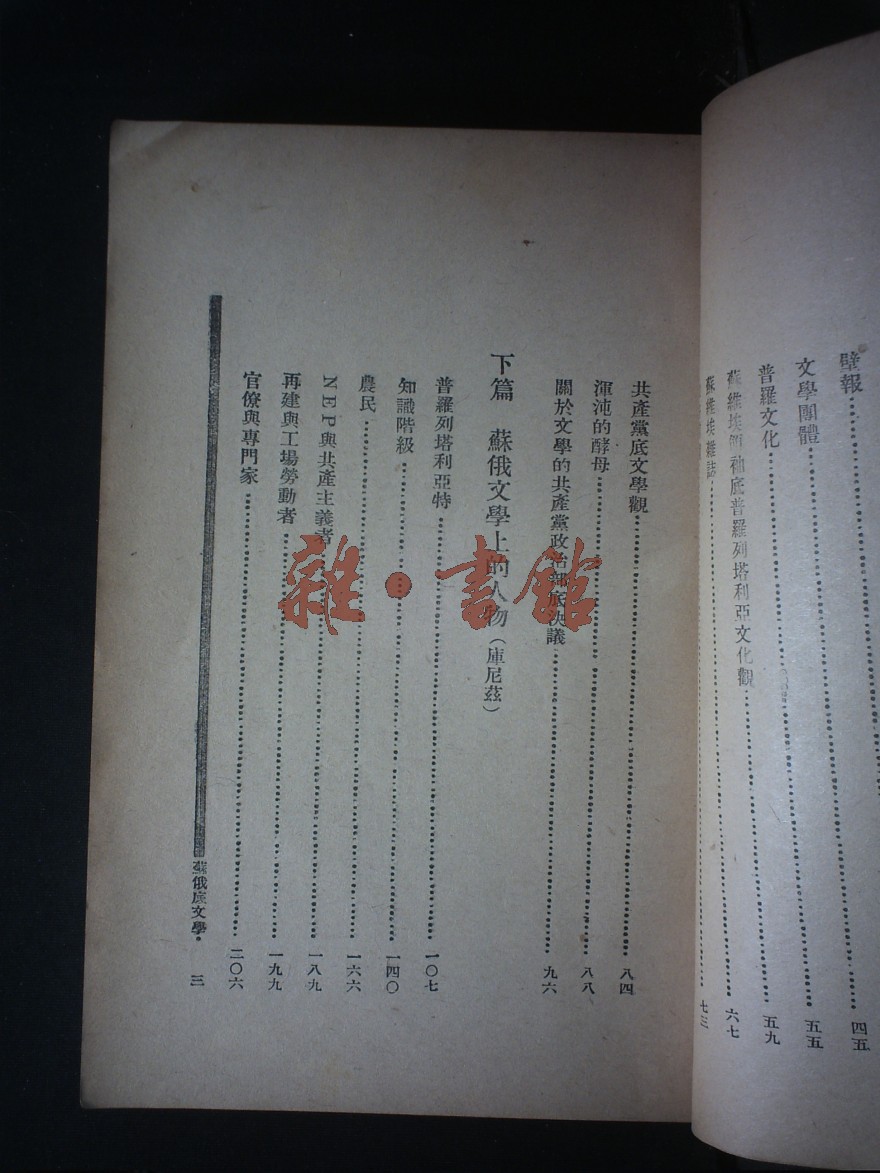 壁報……四五
文學團體……五五
普羅文化……五九
蘇維埃領袖底普羅列塔利亞文化觀……六七
蘇維埃雜誌……七三
共產黨底文學觀……八四
渾沌的酵母……八八
關於文學的共產黨政治部底決議……九六
下篇 蘇俄文學上的人物（庫尼茲）
普羅列塔利亞特……一〇七
知識階級……一四〇
農民……一六六
NEP與共產主義者……一八九
再建與工場勞動者……一九九
官僚與專門家……二〇六
蘇俄底文學· 三
雜·書館